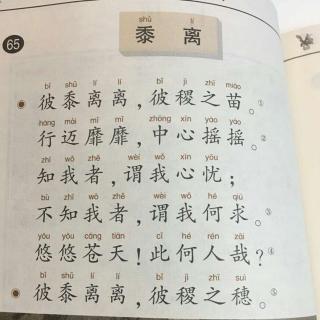 65
shǔ lí
黍离
bǐ shǔ lí lí bǐ jì zhī miáo
彼黍离离，彼稷之苗。①
háng mài mǐ mǐ zhōng xīn yáo yáo
行迈靡靡，中心摇摇。②
zhī wǒ zhě wèi wǒ xīn yōu
知我者，谓我心忧；
bù zhī wǒ zhě wèi wǒ hé qiú
不知我者，谓我何求。③
yōu yōu cāng tiān cǐ hé rén zāi
悠悠苍天！此何人哉？④
bǐ shǔ lí lí bǐ jì zhī suì
彼黍离离，彼稷之穗。⑤